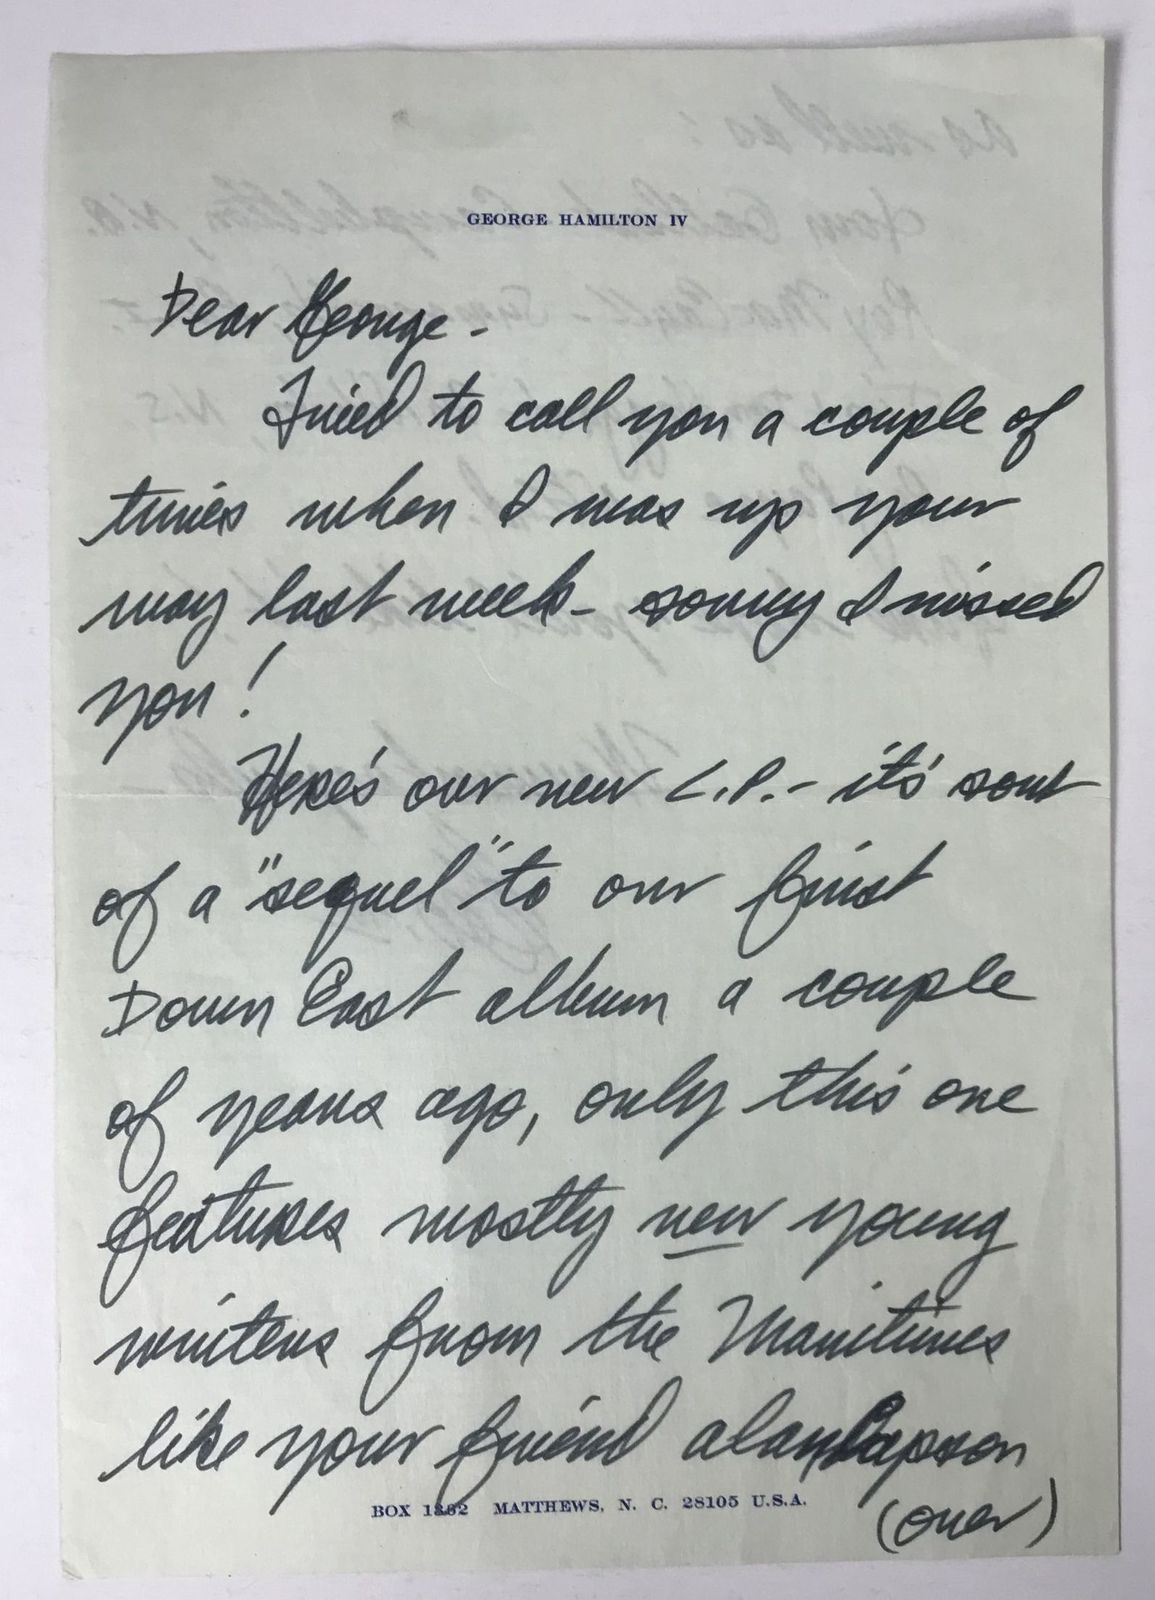 GEORGE HAMILTON IV
Dear George -
Tried to call you a couple of
times when I was up your
way last week - sorry I missed
you!
Here's our new L.P. - it's sort
of a "sequel" to our first
Down East album a couple
of years ago, only this one
features mostly new young
writers from the Maritimes
like your friend alan
BOX 1882 MATTHEWS, N. C. 28105 U.S.A.
(over)